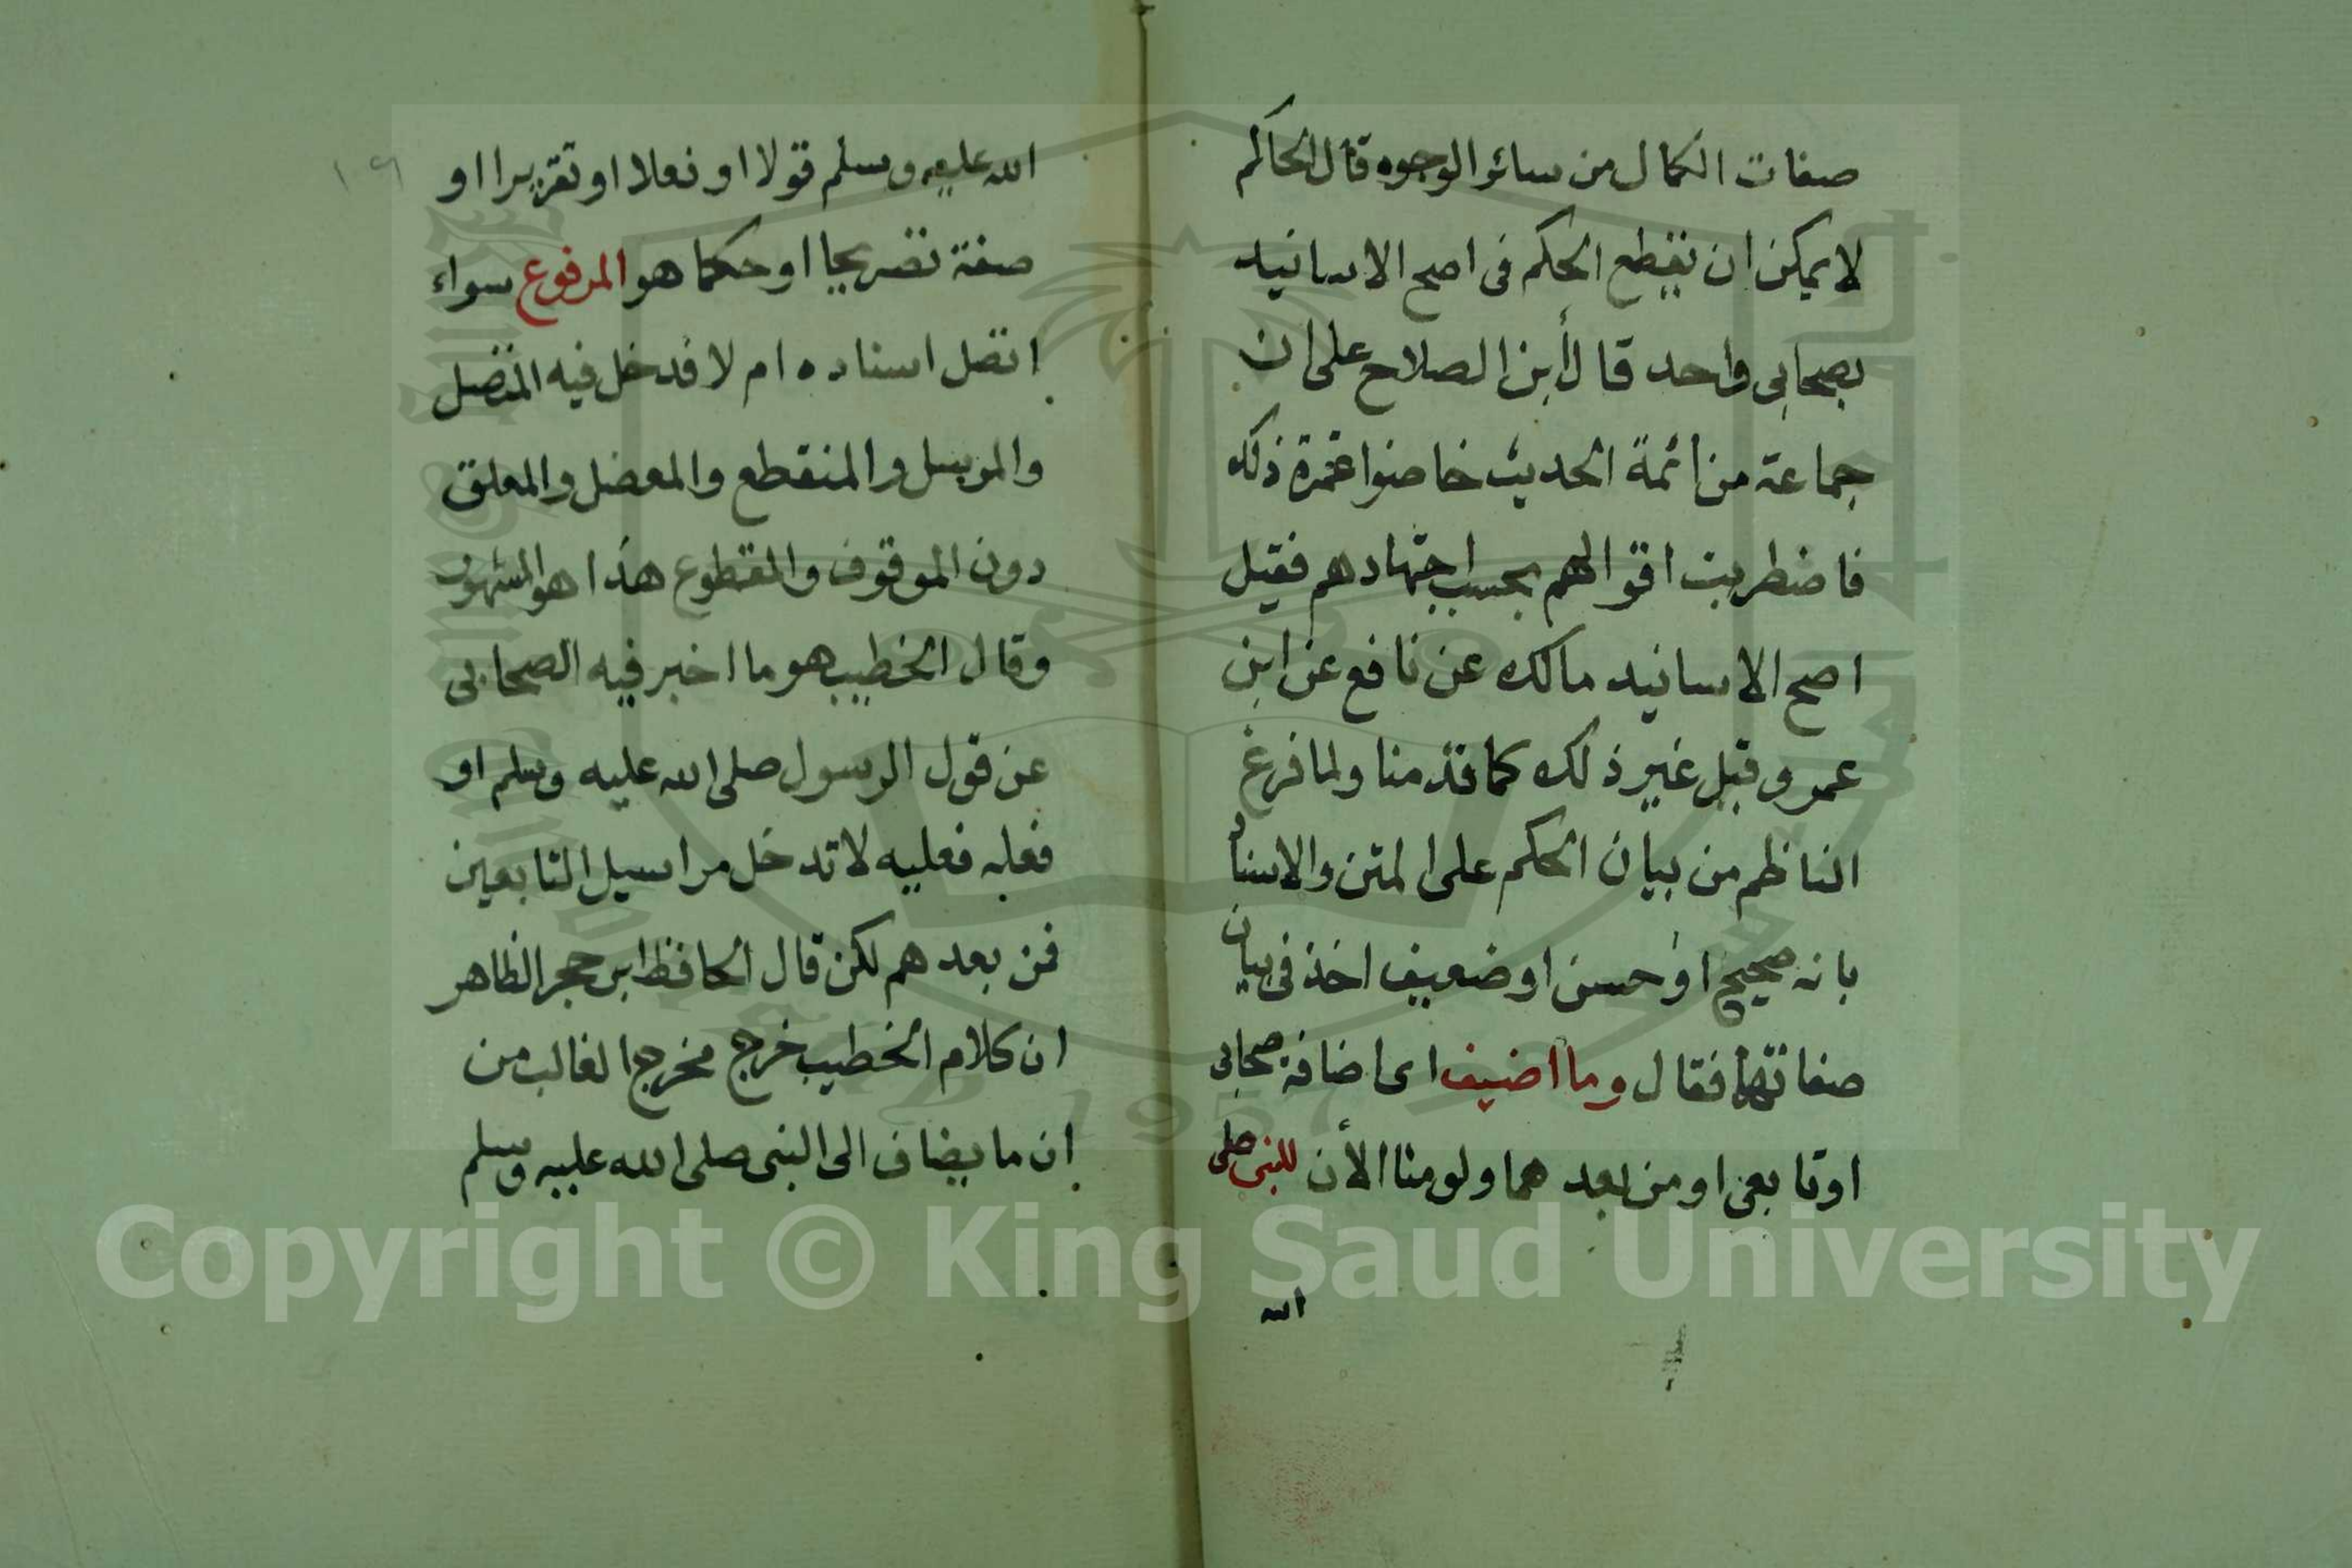 صفات الكمال من سائر الوجوه قال الحاكم
لا يمكن ان نقطع الحكم في اصح الاسانيد
بصحابي واحد قال ابن الصلاح على ان
جماعة من ائمة الحديث خاضوا غمرة ذلك
فاضطربت اقوالهم بحسب اجتهادهم فقيل
اصح الاسانيد مالك عن نافع عن ابن
عمر وقيل غير ذلك كما قدمنا ولما فرغ
الناظم من بيان الحكم على المتن والاسناد
بانه صحيح او حسن او ضعيف اخذ في بيان
صفاتها فقال وما اضيف اى اضافة صحابى
او تابعى او من بعدهما ولو منا الآن للنبى صلى
الله
١٠٦
الله عليه وسلم قولا او فعلا او تقريرا او
صفة تصريحا او حكما هو المرفوع سواء
اتصل اسناده ام لا فدخل فيه المتصل
والمرسل والمنقطع والمعضل والمعلق
دون الموقوف والمقطوع هذا هو المشهور
وقال الخطيب هو ما اخبر فيه الصحابى
عن قول الرسول صلى الله عليه وسلم او
فعله فعليه لا تدخل مراسيل التابعين
فمن بعدهم لكن قال الحافظ ابن حجر الظاهر
ان كلام الخطيب خرج مخرج الغالب من
ان ما يضاف الى النبى صلى الله عليه وسلم
Copyright © King Saud University
1957